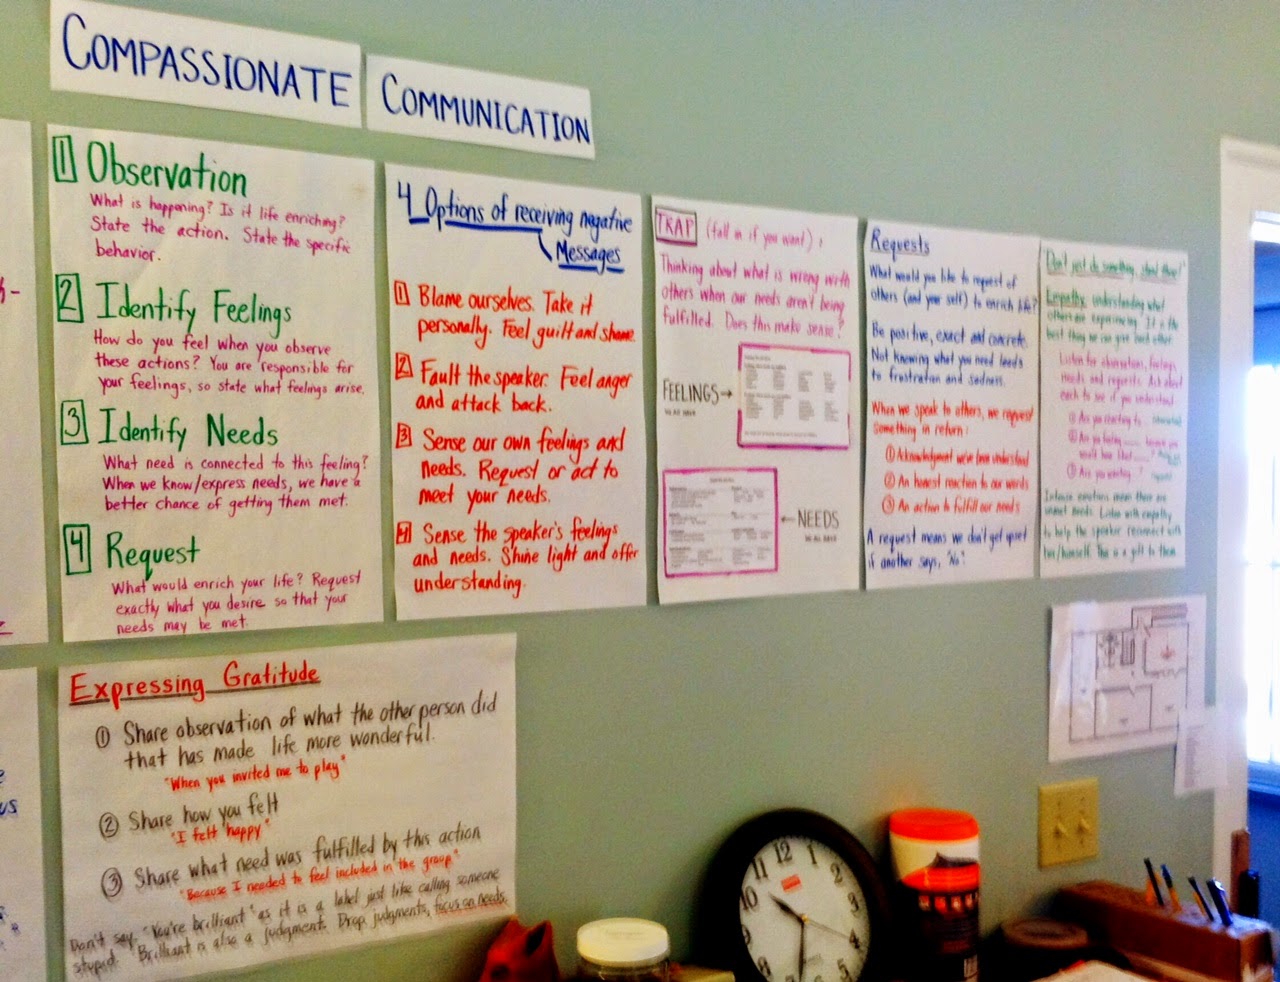 COMPASSIONATE
COMMUNICATION
1 Observation
What is happening? Is it life enriching?
State the action. State the specific
behavior.
2 Identify Feelings
How do you feel when you observe
these actions? You are responsible for
your feelings, so state what feelings arise.
3 Identify Needs
What need is connected to this feeling?
When we know/express needs, we have a
better chance of getting them met.
4 Request
What would enrich your life? Request
exactly what you desire so that your
needs may be met.
4 Options of receiving negative
Messages
1 Blame ourselves. Take it
personally. Feel guilt and shame.
2 Fault the speaker. Feel anger
and attack back.
3 Sense our own feelings and
needs. Request or act to
meet your needs.
4 Sense the speaker's feelings
and needs. Shine light and offer
understanding.
TRAP (fall in if you want) :
Thinking about what is wrong with
others when our needs aren't being
fulfilled. Does this make sense?
FEELINGS →
WE ALL HAVE
← NEEDS
WE ALL HAVE
Requests
What would you like to request of
others (and your self) to enrich life?
Be positive, exact and concrete.
Not knowing what you need leads
to frustration and sadness.
When we speak to others, we request
something in return:
① Acknowledgment we've been understood
② An honest reaction to our words
③ An action to fulfill our needs
A request means we don't get upset
if another says, "No".
"Don't just do something, stand there!"
Empathy: understanding what
others are experiencing. It is the
best thing we can give each other.
Listen for observations, feelings,
needs and requests. Ask about
each to see if you understand.
① Are you reacting to...
② Are you feeling ... because you
would have liked ...?
③ Are you wanting ...?
Intense emotions mean there are
unmet needs. Listen with empathy
to help the speaker reconnect with
her/himself. This is a gift to them.
Expressing Gratitude
① Share observation of what the other person did
that has made life more wonderful.
"When you invited me to play"
② Share how you felt
"I felt happy"
③ Share what need was fulfilled by this action
"Because I needed to feel included in the group"
Don't say, "You're brilliant" as it is a label just like calling someone
stupid. Brilliant is also a judgment. Drop judgments, focus on needs.
10 11 12 1 2 3 4 5 6